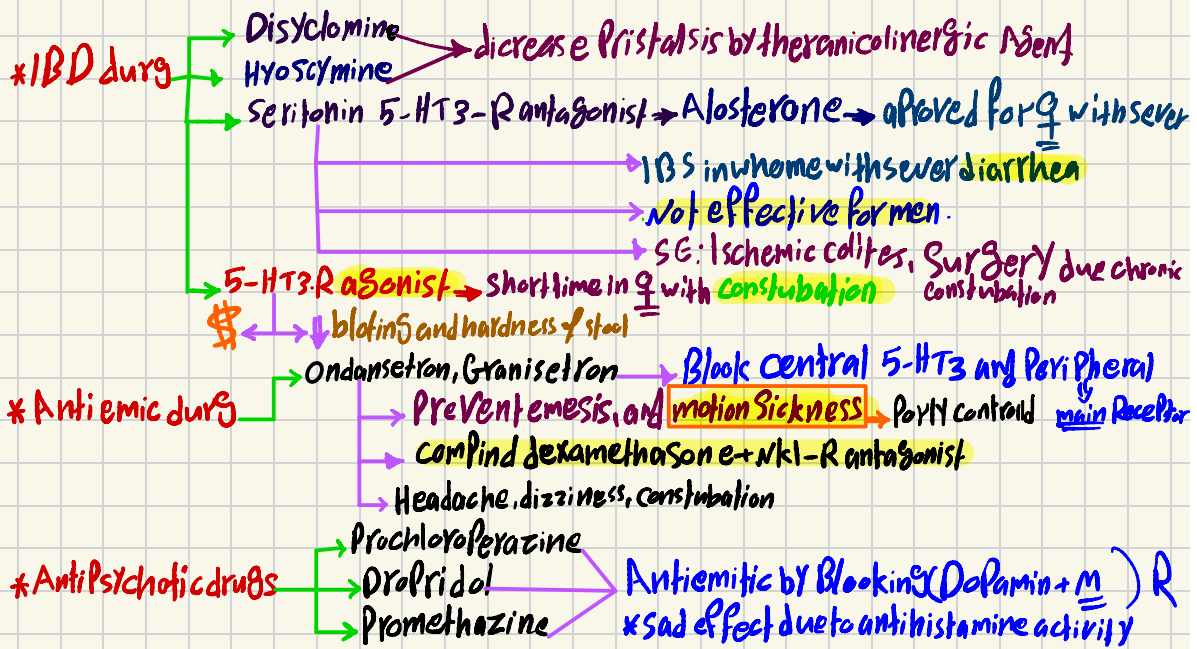 *IBD durg
Disyclomine
Hyoscymine
dicrease Pristalsis by theranicolinergic Agent
Seritonin 5-HT3-R antagonist → Alosterone → aproved for ♀ with sever
IBS in whome with sever diarrhea
Not effective for men.
SE: Ischemic colites, Surgery due chronic
constubation
5-HT3.R agonist → Short time in ♀ with constubation
$ ↓ bloting and hardness of stool
*Antiemic durg
Ondansetron, Granisetron → Blook central 5-HT3 and Peripheral
Prevent emesis, and motion Sickness → Party controld main Receptor
compind dexamethasone + Nk1-R antagonist
Headache, dizziness, constubation
*AntiPsychotic drugs
Prochloroperazine
Dropridol
Promethazine
Antiemitic by Blooking (Dopamin + M) R
*sad effect due to antihistamine activity